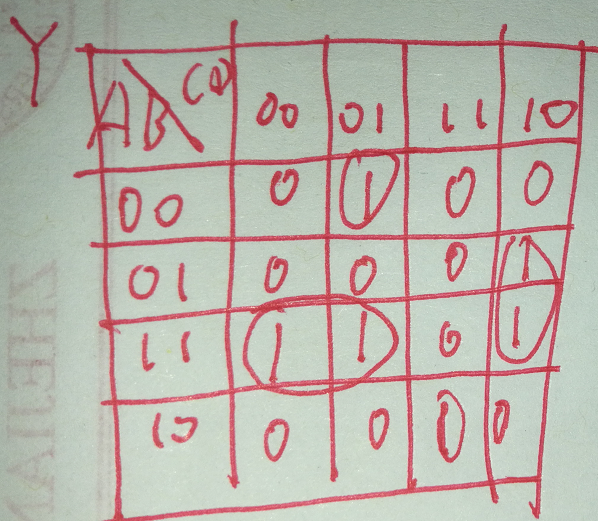 Y
AB CD 00 01 11 10
00 0 1 0 0
01 0 0 0 1
11 1 1 0 1
10 0 0 1 0
ZHEJIAN